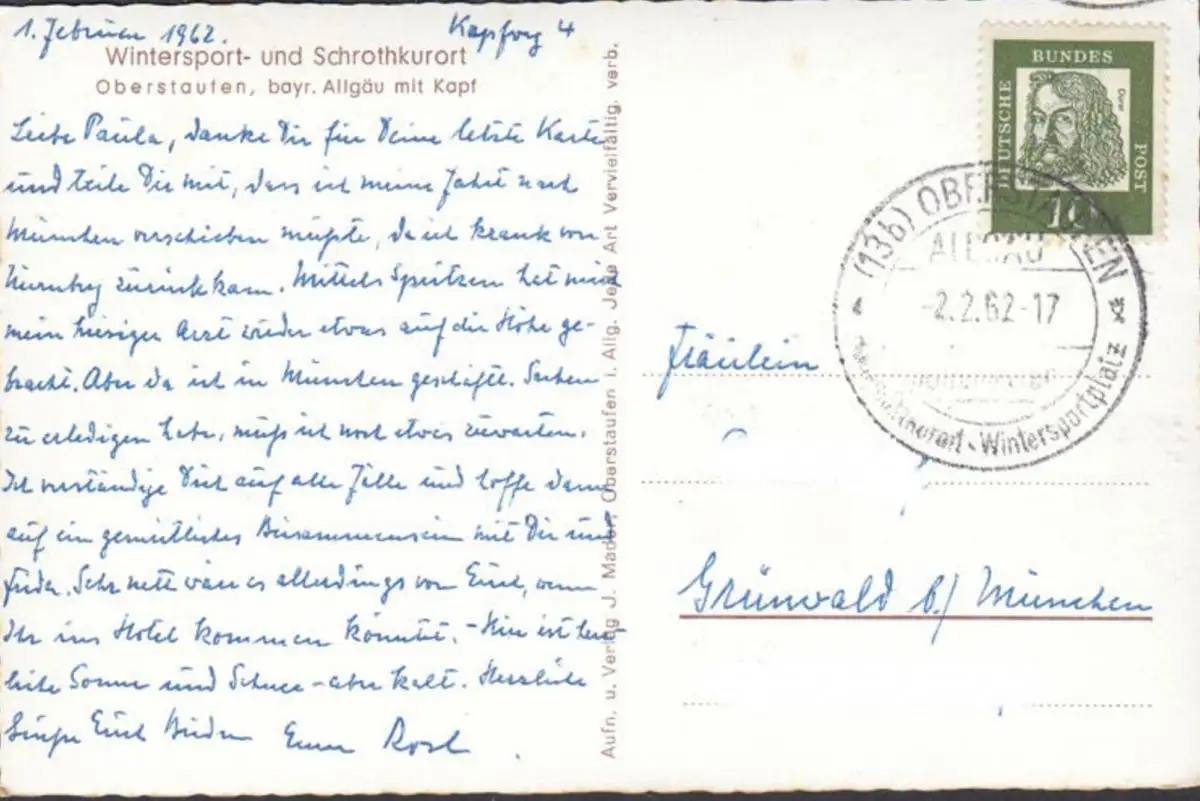 1. Februar 1962. Kapfweg 4
Wintersport- und Schrothkurort
Oberstaufen, bayr. Allgäu mit Kapf
Liebe Paula, danke Dir für Deine letzte Karte
und teile Dir mit, dass ich meine Fahrt nach
München verschieben mußte, da ich krank von
Nürnbg zurückkam. Mittels Spritzen hat mich
mein hiesiger Arzt wieder etwas auf die Höhe ge-
bracht. Aber da ich in München geschäftl. Sachen
zu erledigen habe, muß ich noch etwas zuwarten.
Ich verständige Dich auf alle Fälle und hoffe dann
auf ein gemütliches Beisammensein mit Dir und
Frida. Sehr nett wäre es allerdings von Euch, wenn
Ihr ins Hotel kommen könntet. - Hier ist herr-
liche Sonne und Schnee - aber kalt. Herzliche
Grüße Euch Beiden Eure Rosl
Aufn. u. Verlag J. Mader, Oberstaufen i. Allg. Jede Art Vervielfältig. verb.
DEUTSCHE BUNDES POST
Dürer
10
(13b) OBERSTAUFEN
ALLGÄU
-2.2.62-17
Wintersportplatz
Fräulein
Grünwald b/ München